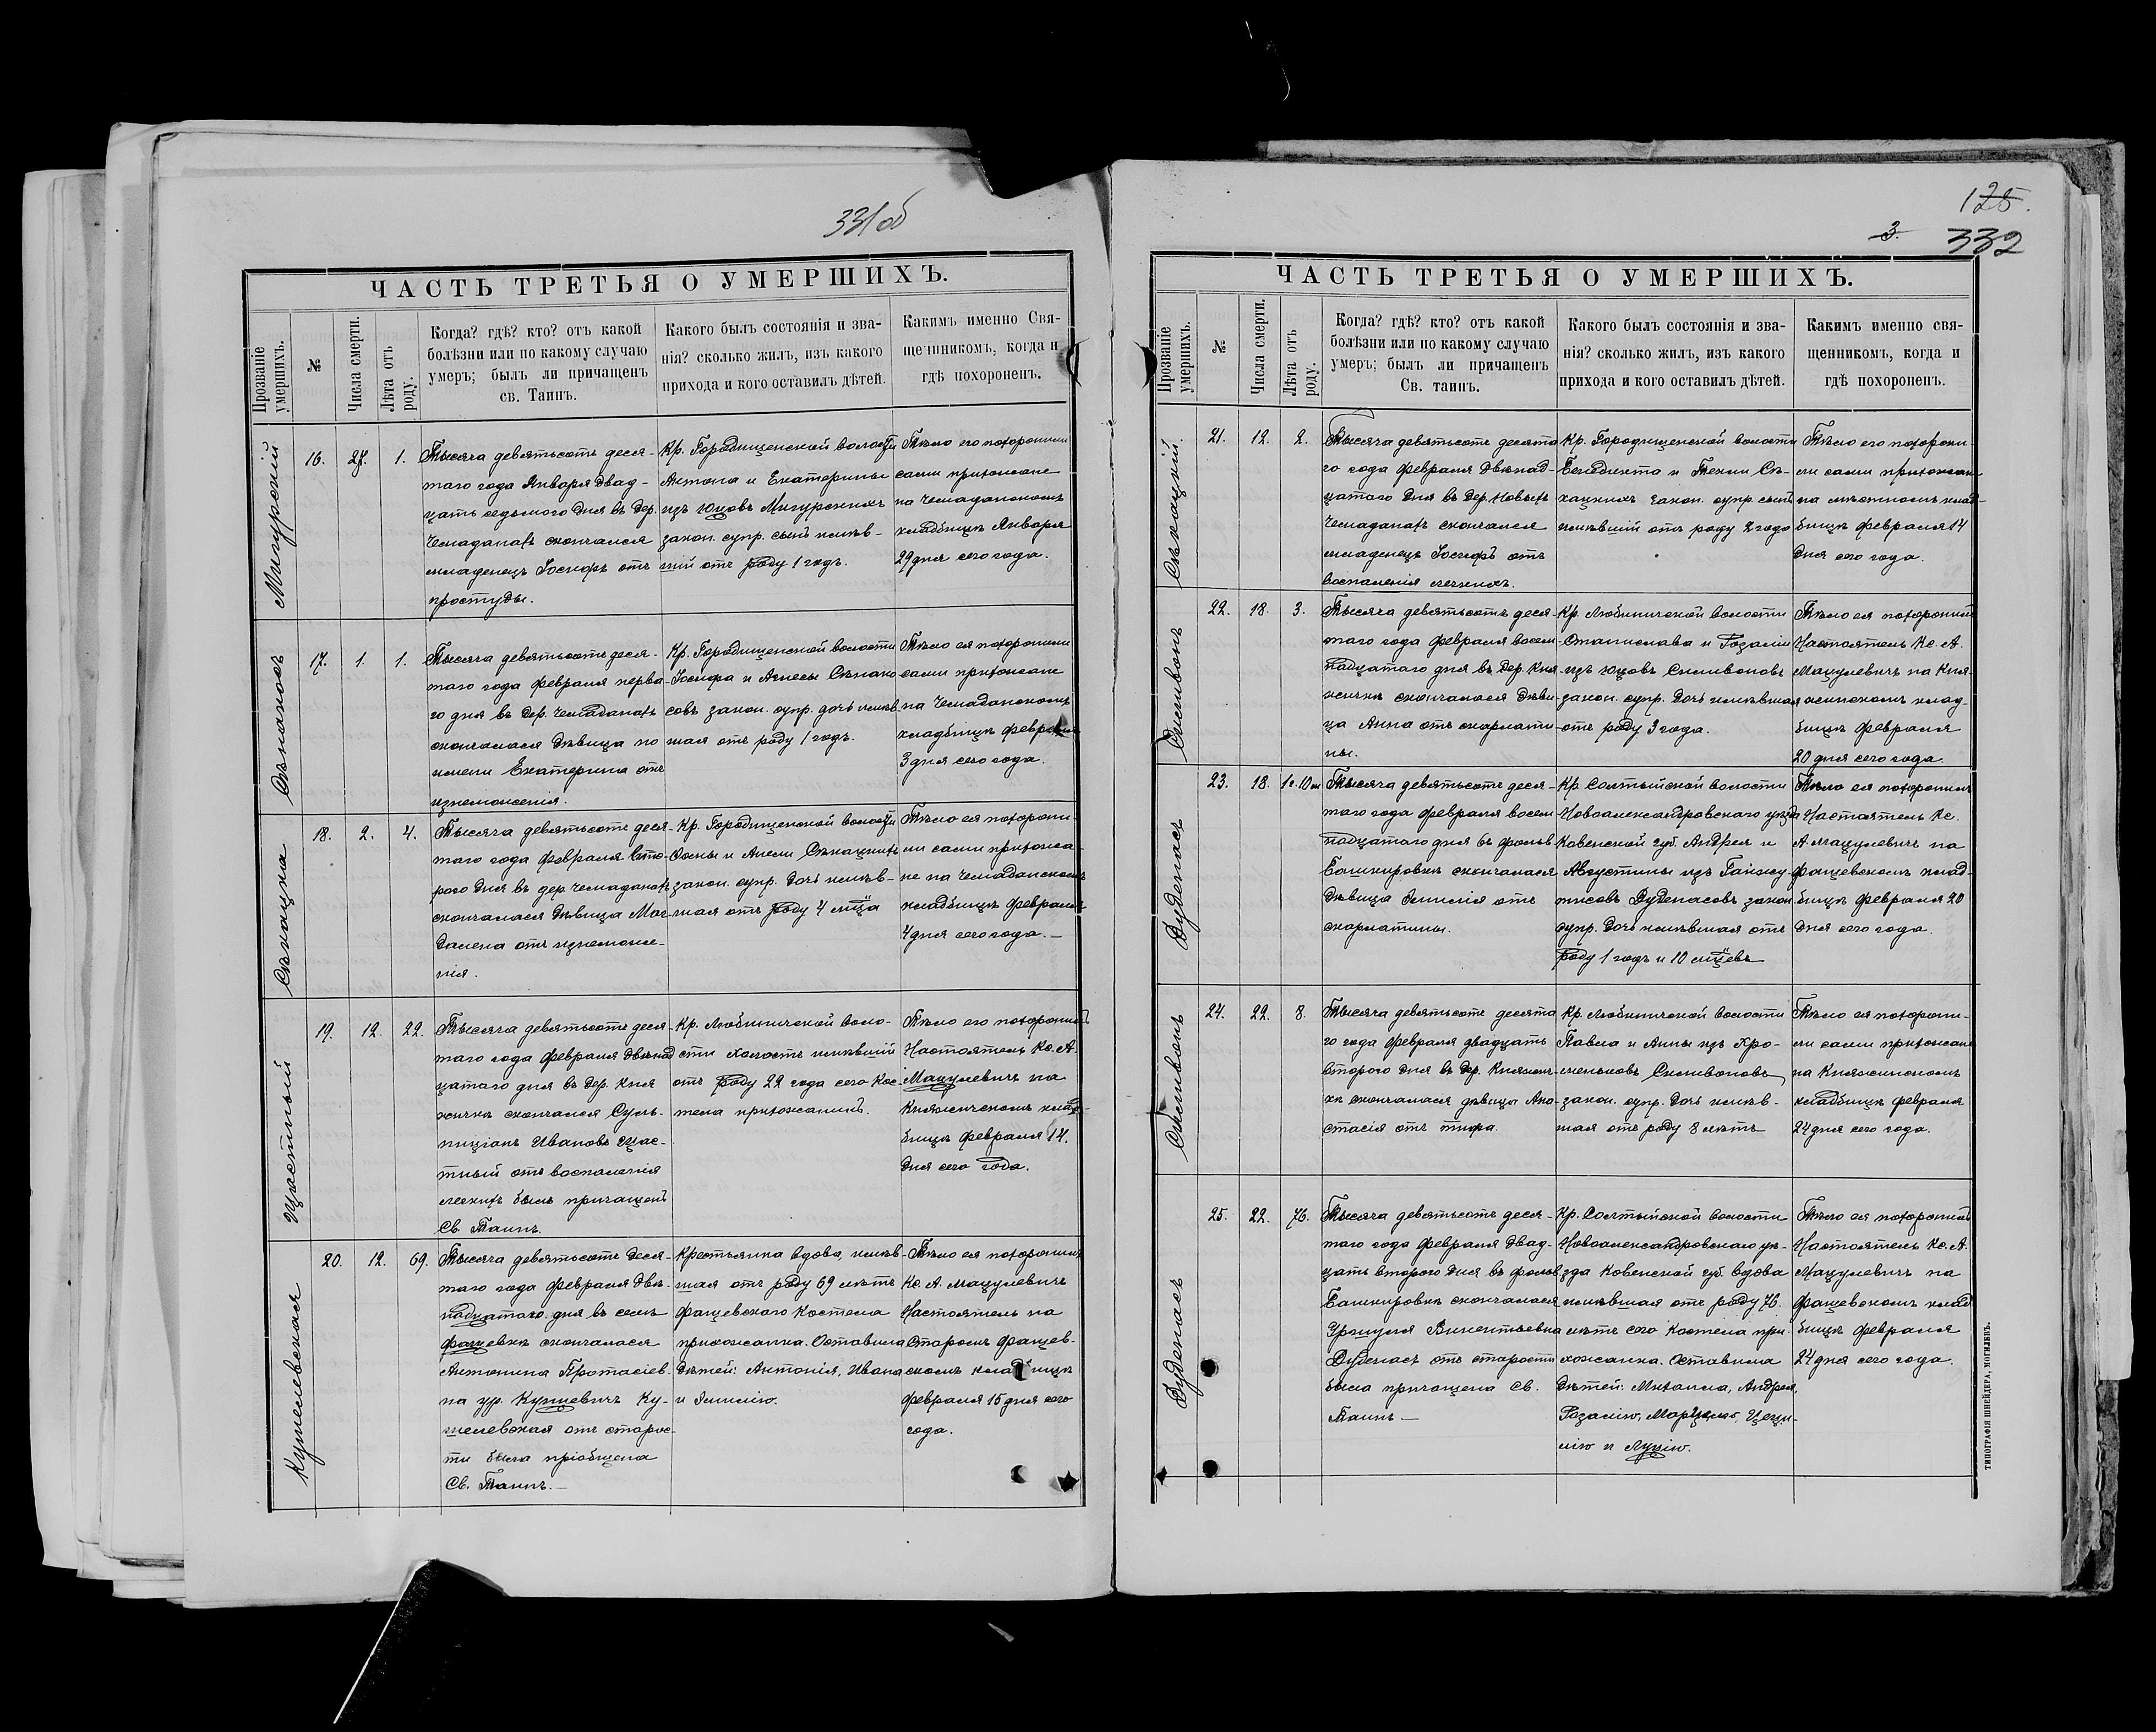 331об
ЧАСТЬ ТРЕТЬЯ О УМЕРШИХЪ.
Прозваніе умершихъ.
№
Числа смерти.
Лѣта отъ роду.
Когда? гдѣ? кто? отъ какой
болѣзни или по какому случаю
умеръ; былъ ли причащенъ
св. Таинъ.
Какого былъ состоянія и зва-
нія? сколько жилъ, изъ какого
прихода и кого оставилъ дѣтей.
Какимъ именно Свя-
щенникомъ, когда и
гдѣ похороненъ.
Мигурскій
16.
27.
1.
Тысяча девятьсотъ деся-
таго года Января двад-
цать седьмого дня въ дер.
Чемаданахъ скончался
младенецъ Іосифъ отъ
простуды.
Кр. Городищенской волости
Антона и Екатерины
изъ Юцовъ Мигурскихъ
закон. супр. сынъ имѣв-
шій отъ роду 1 годъ.
Тѣло его похоронили
сами прихожане
на Чемаданскомъ
кладбищѣ Января
29 дня сего года.
Сѣнакосъ
17.
1.
1.
Тысяча девятьсотъ деся-
таго года февраля перва-
го дня въ дер. Чемаданахъ
скончалася дѣвица по
имени Екатерина отъ
изнеможенія.
Кр. Городищенской волости
Іосифа и Агнесы Сѣнако
совъ закон. супр. дочь имѣв
шая отъ роду 1 годъ.
Тѣло ея похоронили
сами прихожане
на Чемаданскомъ
кладбищѣ февраля
3 дня сего года.
Сѣкацка
18.
2.
4.
Тысяча девятьсотъ деся-
таго года февраля вто-
рого дня въ дер. Чемаданахъ
скончалася дѣвица Маг-
далена отъ изнеможе-
нія.
Кр. Городищенской волости
Фомы и Анели Сѣкацкихъ
закон. супр. дочь имѣв-
шая отъ роду 4 мца
Тѣло ея похорони
ли сами прихожа-
не на Чемаданскомъ
кладбищѣ февраля
4 дня сего года.—
Щастный
19.
12.
22.
Тысяча девятьсотъ деся
таго года февраля двѣнад
цатаго дня въ дер. Кня
жичкѣ скончался Суль-
пиціанъ Ивановъ Щас-
тный отъ воспаленія
легкихъ былъ причащенъ
Св. Таинъ.
Кр. Любиничской воло-
сти холостъ имѣвшій
отъ роду 22 года сего Кос-
тела прихожанинъ.
Тѣло его похоронилъ
Настоятель Кс. А.
Мацулевичъ на
Княжичскомъ клад-
бищѣ февраля 14.
дня сего года.
Кушелевская
20.
12.
69.
Тысяча девятьсотъ деся-
таго года февраля двѣ-
надцатаго дня въ селѣ
Фащевкѣ скончалася
Антонина Протасіев
на ур. Кушевичъ Ку-
шелевская отъ старос-
ти была пріобщена
Св. Таинъ.—
Крестьянка вдова, имѣв-
шая отъ роду 69 лѣтъ
Фащевскаго Костела
прихожанка. Оставила
дѣтей: Антонія, Ивана
и Эмилію.
Тѣло ея похоронилъ
Кс. А. Мацулевичъ
Настоятель на
Старомъ Фащев-
скомъ кладбищѣ
февраля 15 дня сего
года.
125.
3.
332
ЧАСТЬ ТРЕТЬЯ О УМЕРШИХЪ.
Прозваніе умершихъ.
№
Числа смерти.
Лѣта отъ роду.
Когда? гдѣ? кто? отъ какой
болѣзни или по какому случаю
умеръ; былъ ли причащенъ
Св. таинъ.
Какого былъ состоянія и зва-
нія? сколько жилъ, изъ какого
прихода и кого оставилъ дѣтей.
Какимъ именно свя-
щенникомъ, когда и
гдѣ похороненъ.
Сѣкацкій.
21.
12.
2.
Тысяча девятьсотъ десята
го года февраля двѣнад-
цатаго дня въ дер. Новыхъ
Чемаданахъ скончался
младенецъ Іосифъ отъ
воспаленія легкихъ.
Кр. Городищенской волости
Бенедикта и Теклі Сѣ-
кацкихъ закон. супр. сынъ
имѣвшій отъ роду 2 года
Тѣло его похорони-
ли сами прихожан
на мѣстномъ клад-
бищѣ февраля 14
дня сего года.
Симвонъ
22.
18.
3.
Тысяча девятьсотъ деся-
таго года февраля восем-
надцатаго дня въ дер. Кня
жичкѣ скончалася дѣви-
ца Анна отъ скарлати-
ны.
Кр. Любиничской волости
Станислава и Розаліи
изъ Юцовъ Симвоновъ
закон. супр. дочь имѣвшая
отъ роду 3 года.
Тѣло ея похоронилъ
Настоятель Кс. А.
Мацулевичъ на Кня-
жичскомъ клад-
бищѣ февраля
20 дня сего года.
Дуденасъ
23.
18.
1 г. 10 м
Тысяча девятьсотъ деся-
таго года февраля восем-
надцатаго дня въ фольв
Башкировкѣ скончалася
дѣвица Эмилія отъ
скарлатины.
Кр. Солтыйской волости
Новоалександровскаго уѣзда
Ковенской губ. Андрея и
Августины изъ Гайжу
тисовъ Дуденасовъ закон
супр. дочь имѣвшая отъ
роду 1 годъ и 10 мцевъ
Тѣло ея похоронилъ
Настоятель Кс.
А. Мацулевичъ на
Фащевскомъ клад-
бищѣ февраля 20
дня сего года.
Симвонъ
24.
22.
8.
Тысяча девятьсотъ десята
го года февраля двадцать
второго дня въ дер. Княжич-
кѣ скончалася дѣвица Ана-
стасія отъ тифа.
Кр. Любиничской волости
Павла и Анны изъ Хро-
меньковъ Симвоновъ
закон. супр. дочь имѣв-
шая отъ роду 8 лѣтъ
Тѣло ея похорони-
ли сами прихожане
на Княжичскомъ
кладбищѣ февраля
24 дня сего года.
Дуденасъ
25.
22.
76.
Тысяча девятьсотъ деся-
таго года февраля двад-
цать второго дня въ фольв
Башкировкѣ скончалася
Уршуля Викентьевна
Дуденасъ отъ старости
была причащена Св.
Таинъ—
Кр. Солтыйской волости
Новоалександровскаго уѣ-
зда Ковенской губ. вдова
имѣвшая отъ роду 76.
лѣтъ сего Костела при-
хожанка. Оставила
дѣтей: Михаила, Андрея,
Розалію, Марцелю, Цеци-
лію и Луцію.
Тѣло ея похоронилъ
Настоятель Кс. А.
Мацулевичъ на
Фащевскомъ клад
бищѣ февраля
24 дня сего года.
ТИПОГРАФІЯ ШНЕЙДЕРА, МОГИЛЕВЪ.